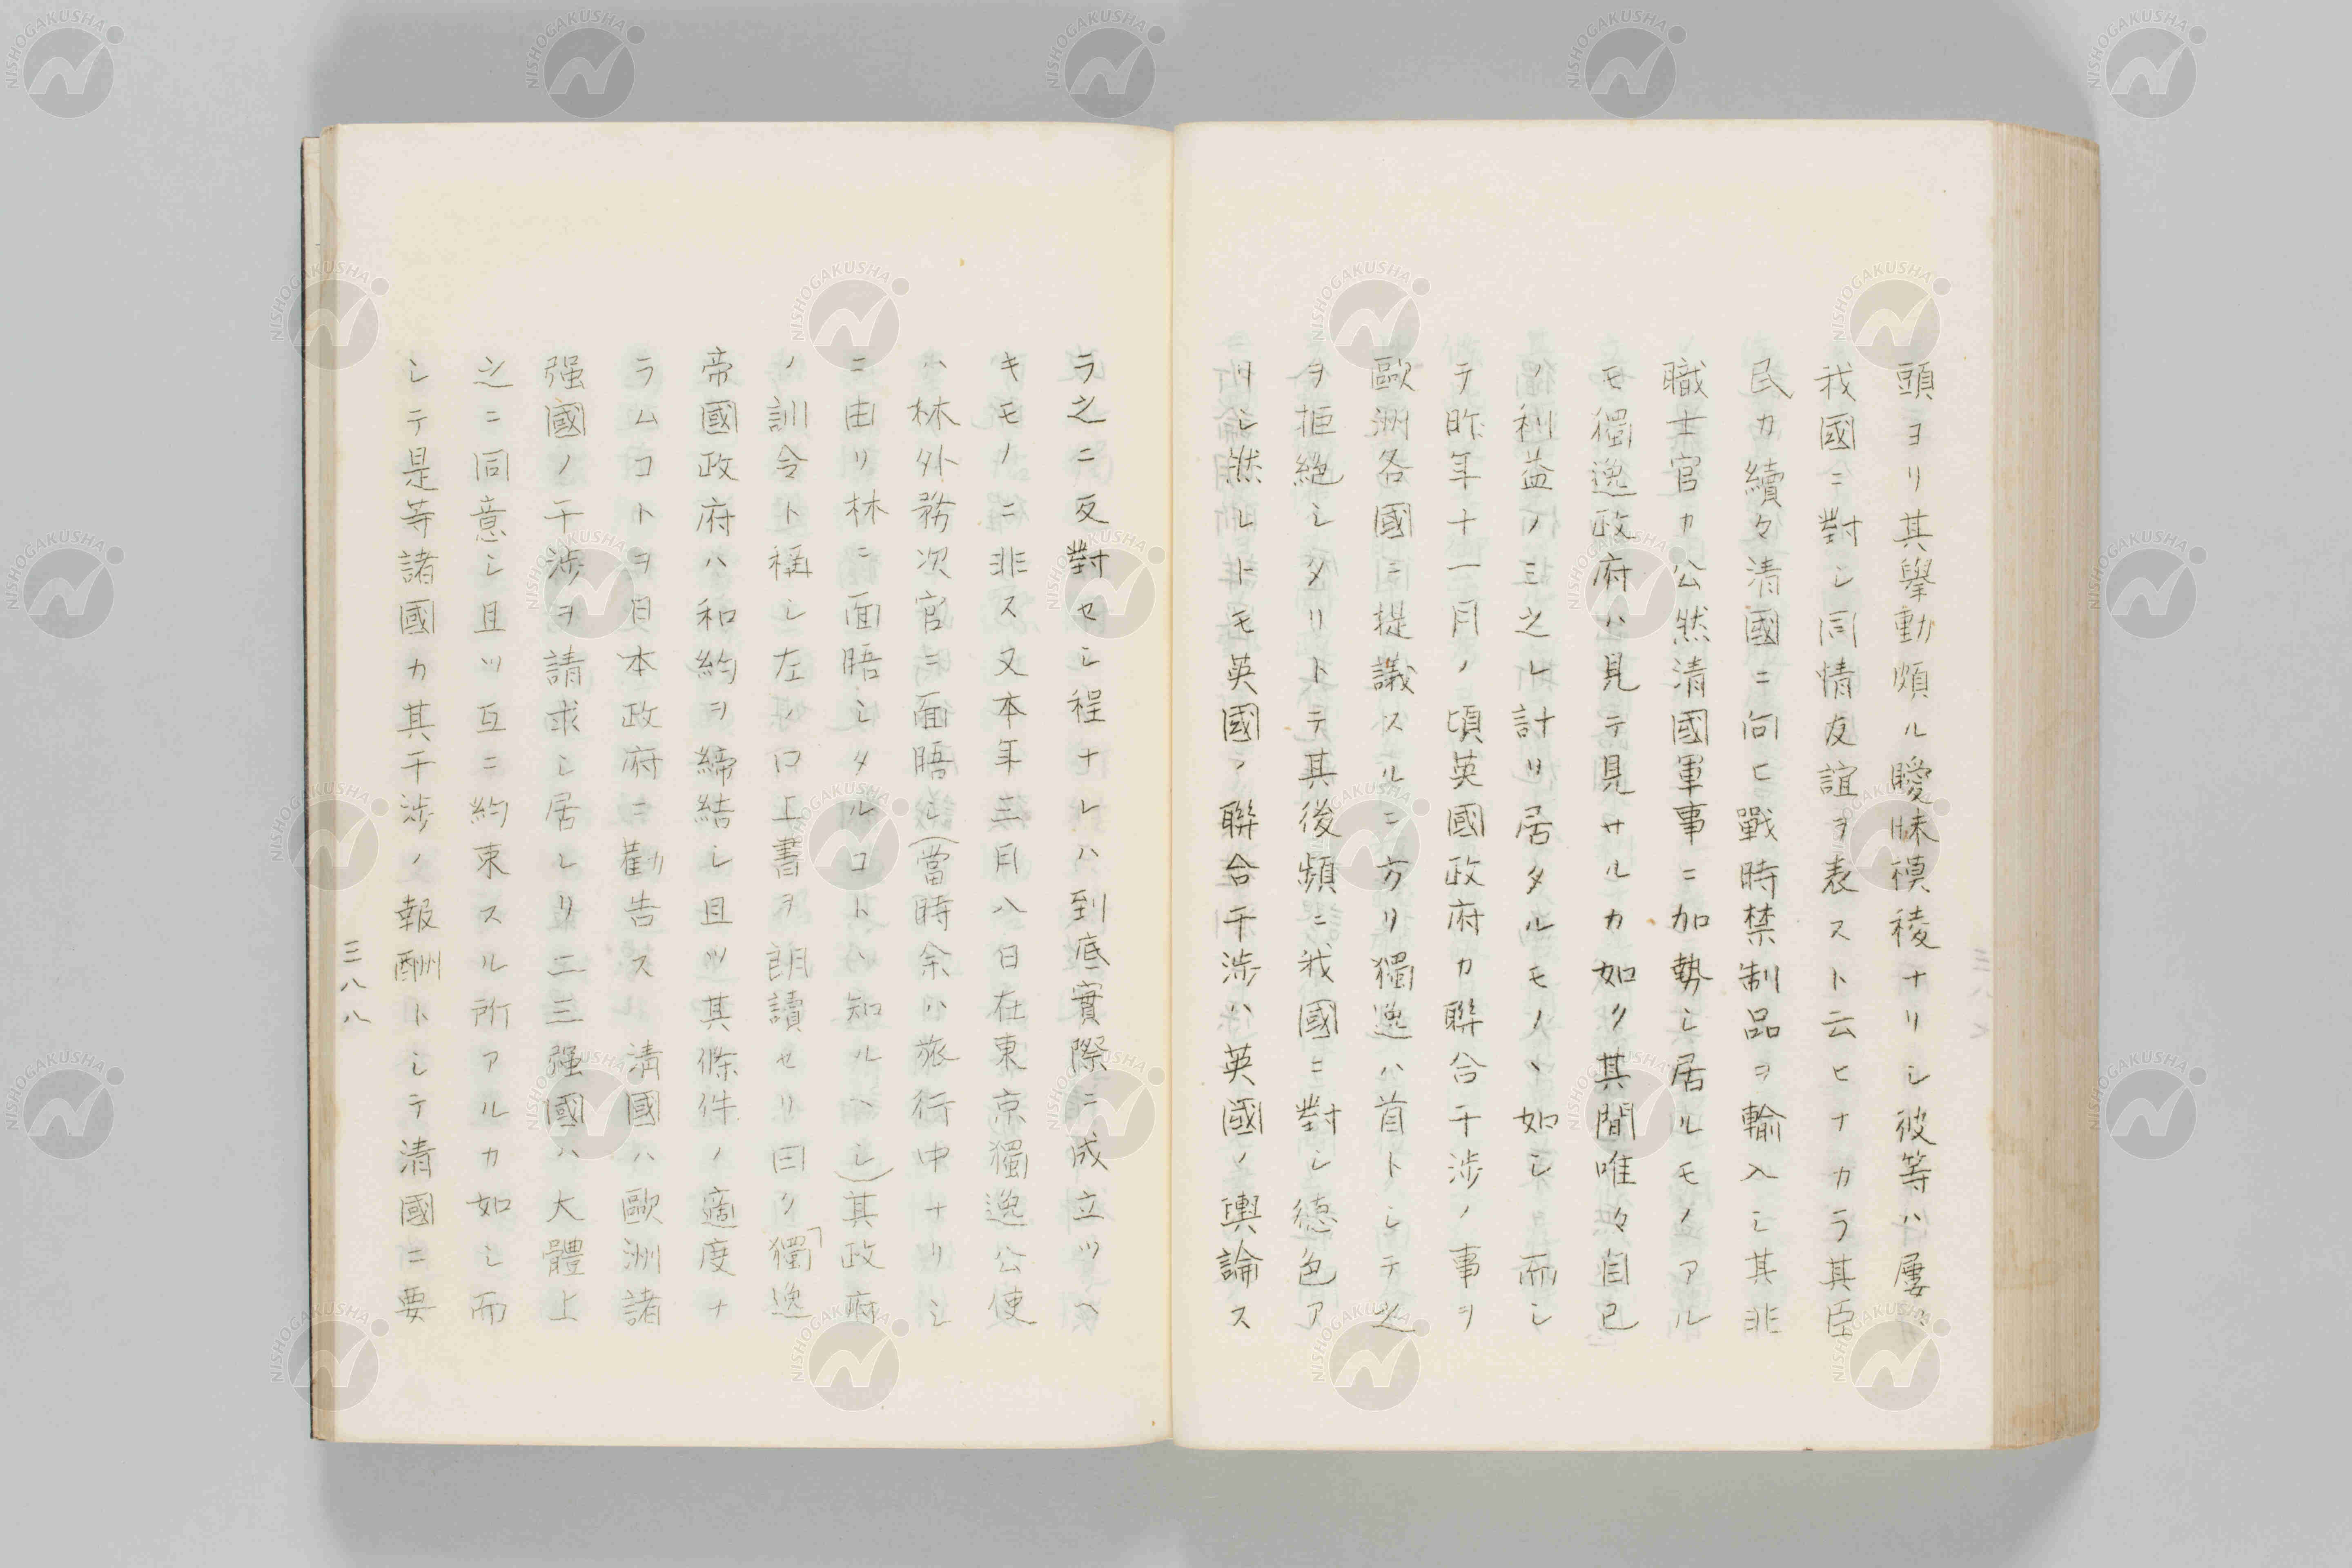 頭ヨリ其擧動頗ル曖昧模稜ナリシ彼等ハ屢々
我國ニ對シ同情友誼ヲ表スト云ヒナカラ其臣
民カ續々清國ニ向ヒ戰時禁制品ヲ輸入シ其非
職士官カ公然清國軍事ニ加勢シ居ルモノアル
モ獨逸政府ハ見テ見サルカ如ク其間唯々自己
ノ利益ノミ之レ計リ居タルモノヽ如シ而シ
テ昨年十一月ノ頃英國政府カ聯合干渉ノ事ヲ
歐洲各國ニ提議スルニ方リ獨逸ハ首トシテ之
ヲ拒絶シタリトテ其後頻ニ我國ニ對シ德色ア
リシ然レトモ英國ノ聯合干渉ハ英國ノ輿論ス
ラ之ニ反對セシ程ナレハ到底實際ニ成立ツヘ
キモノニ非ス又本年三月八日在東京獨逸公使
ハ林外務次官ニ面晤シ(當時余ハ旅行中ナリシ
ニ由リ林ニ面晤シタルコトヽ知ルヘシ)其政府
ノ訓令ト稱シ左ノ口上書ヲ朗讀セリ曰ク「獨逸
帝國政府ハ和約ヲ締結シ且ツ其條件ノ適度ナ
ラムコトヲ日本政府ニ勸告ス 清國ハ歐洲諸
强國ノ干渉ヲ請求シ居レリ二三强國ハ大體上
之ニ同意シ且ツ互ニ約束スル所アルカ如シ而
シテ是等諸國カ其干渉ノ報酬トシテ清國ニ要
三八八
NISHOGAKUSHA